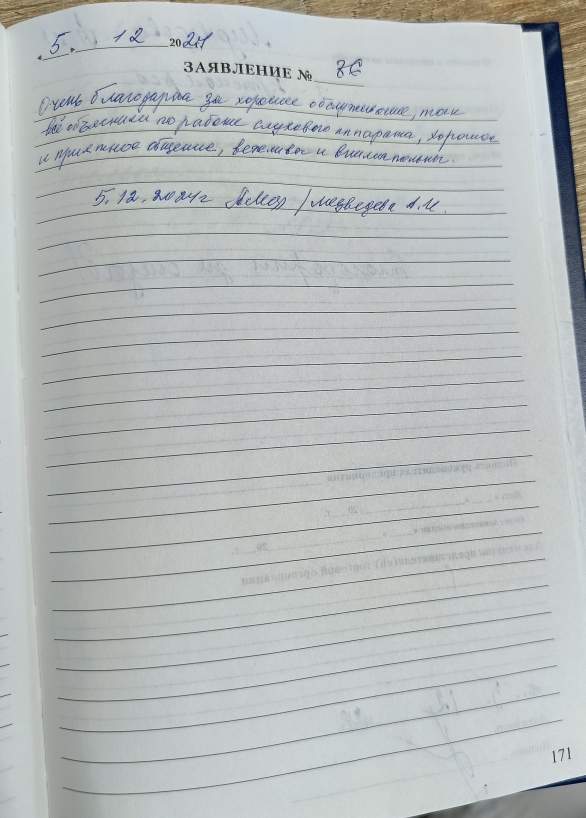 5. 12 2024
ЗАЯВЛЕНИЕ № 36
Очень благодарна за хорошее обслуживание, там
всё объяснили по работе слухового аппарата, хорошое
и приятное общение, вежливы и внимательны.
5.12.2024г /медведева А.И.
171